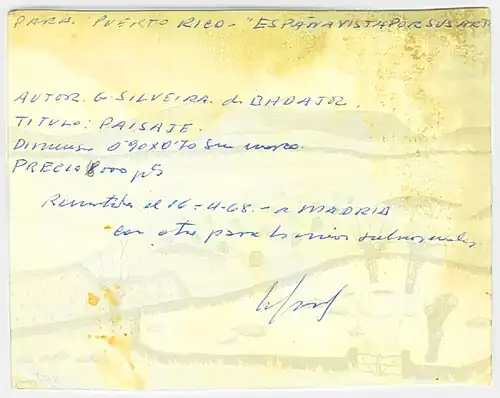 PARA. PUERTO RICO - "ESPAÑA VISTA POR SUS ART
AUTOR. G. SILVEIRA. de BADAJOZ.
TITULO: PAISAJE.
0'90X0'70 sin marco.
PRECIO 8000 pts
el 16-4-68.- a MADRID
con otro para